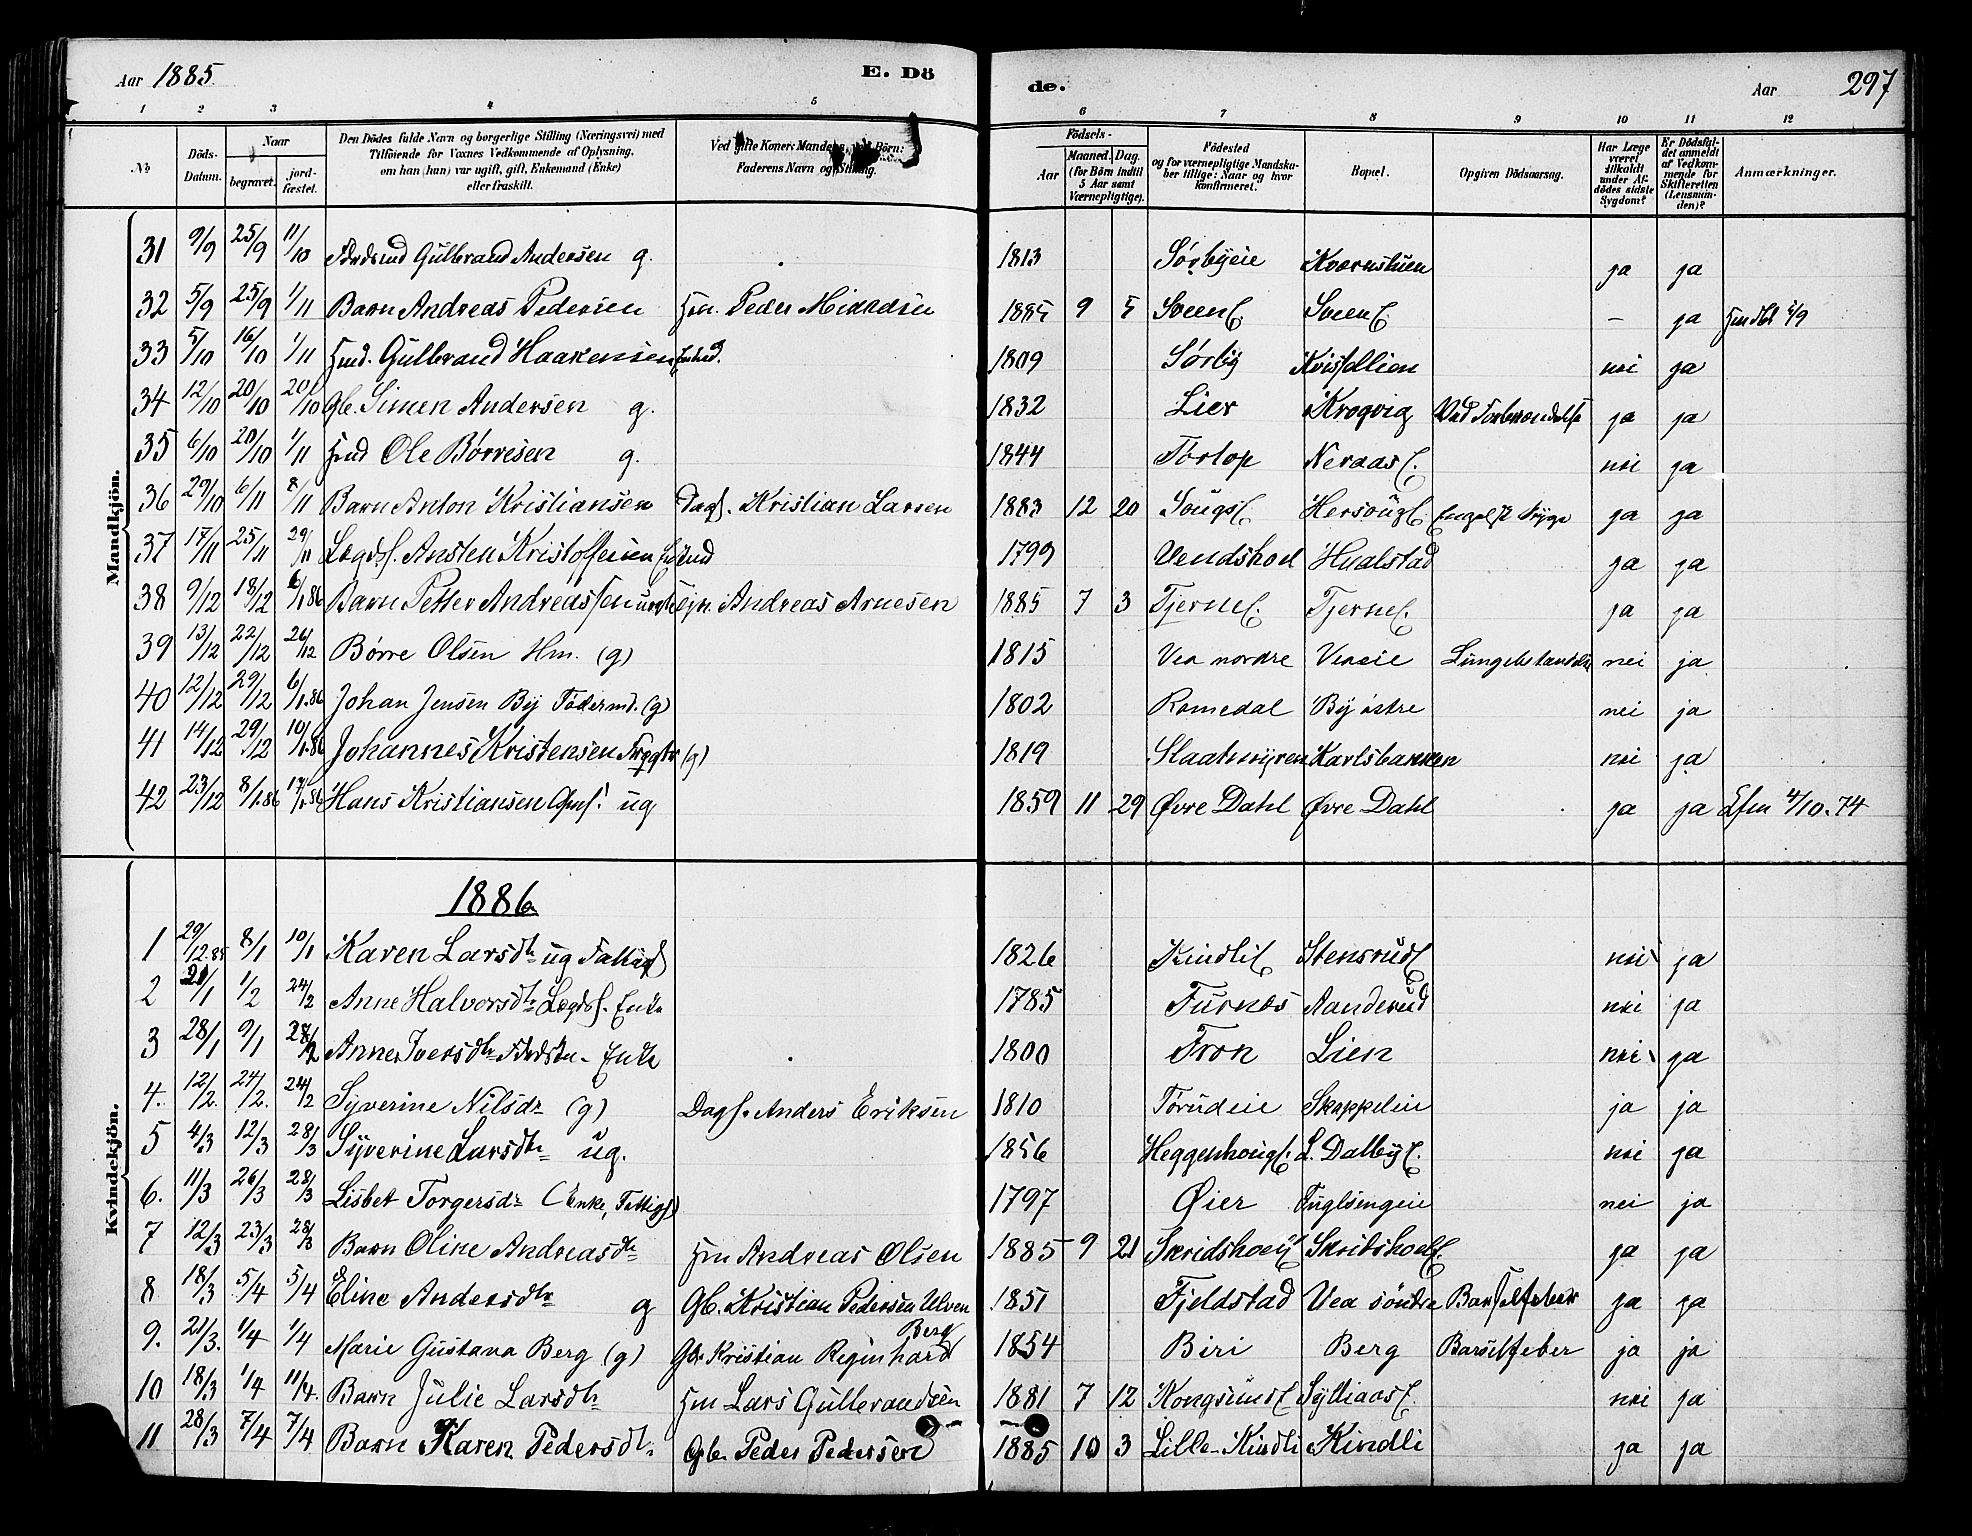 Aar 1885. E. Dö de. Aar 297
1 2 3 4 5 6 7 8 9 10 11 12
No Döds-Datum. Naar begravet. jord-fæstet. Den Dödes fulde Navn og borgerlige Stilling (Næringsvei) med Tilföiende for Voxnes Vedkommende af Oplysning, om han (hun) var ugift, gift, Enkemand (Enke) eller fraskilt. Ved gifte Koner: Mandens, ved Börn: Faderens Navn og Stilling. Födsels- Aar Maaned. Dag. (for Börn indtil 5 Aar samt Værnepligtige). Födested og for værnepligtige Mandskaber tillige: Naar og hvor konfirmeret. Bopæl. Opgiven Dödsaarsag. Har Læge været tilkaldt under Afdödes sidste Sygdom? Er Dödsfaldet anmeldt af Vedkommende for Skifteretten (Lensmanden)? Anmærkninger.
Mandkjön.
31 9/9 25/9 11/10 Gulbrand Andersen g. 1813 Sørbyeie Kværnstuen ja ja
32 5/9 25/9 1/11 Barn Andreas Pedersen Hm. Peder 1885 9 5 Sveen Sveen – ja
33 5/10 16/10 1/11 Gulbrand Haakensen 1809 Sørby nei ja
34 12/10 20/10 20/10 Gb. Simen Andersen g. 1832 Lier Krogvig ja ja
35 6/10 20/10 1/11 Ole Børresen g. 1844 Tørtop Neraas nei ja
36 29/10 6/11 8/11 Barn Anton Kristiansen Dags. Kristian Larsen 1883 12 20 Hersoug Engelsk Syge ja ja
37 17/11 25/11 29/11 Lægds. Ansten Kristoffersen 1799 Hualstad ja ja
38 9/12 18/12 6/1.86 Barn Petter Andreassen Andreas Arnesen 1885 7 3 Tjerne Tjerne ja ja
39 13/12 22/12 26/12 Børre Olsen Hm. (g) 1815 Vea nordre Veaeie nei ja
40 12/12 29/12 6/1.86 Johan Jensen By Födermd. (g) 1802 Romedal By østre nei ja
41 14/12 29/12 10/1.86 Johannes Kristensen (g) 1819 Slaatmyren Karlsbakken nei ja
42 23/12 8/1.86 17/1.86 Hans Kristiansen ug 1859 11 29 Øvre Dahl Øvre Dahl ja ja 4/10.74
1886
Kvindekjön.
1 29/12.85 8/1 10/1 Karen Larsdtr ug Fattigl 1826 Kindli Stensrud nei ja
2 1/2 24/2 Anne Halvorsdtr Lægdsl. Enke 1785 Furnes Aanderud nei ja
3 28/1 9/1 28/2 Anne Iversdtr Enke 1800 Fron Lien nei ja
4. 12/2. 24/2. 24/2 Syverine Nilsdr (g) Dags. Anders Eriksen 1810 Torudeie ja ja
5 4/3 12/3 28/3 Syverine Larsdtr ug. 1856 Heggenhoug L. Dalby nei ja
6. 11/3 26/3 28/3 Lisbet Torgersdr (Enke, Fattigl) 1797 Øier Fuglsengeie nei ja
7 12/3 23/3 28/3 Barn Oline Andreasdtr Hm Andreas Olsen 1885 9 21 ja ja
8 18/3 5/4 5/4 Eline Andersdtr g Gb. Kristian Pedersen Ulven 1851 Fjeldstad Vea söndre Barselfeber ja ja
9. 21/3. 1/4 1/4 Marie Gustava Berg (g) Gb. Kristian Reginhard Berg 1854 Biri Berg Barselfeber ja ja
10 18/3 1/4 11/4. Barn Julie Larsdtr Hm Lars Gulbrandsen 1881 7 12 nei ja
11 28/3 7/4 7/4 Barn Karen Pedersdtr Gb. Peder Pedersen 1885 10 3 Lille-Kindli Kindli ja ja